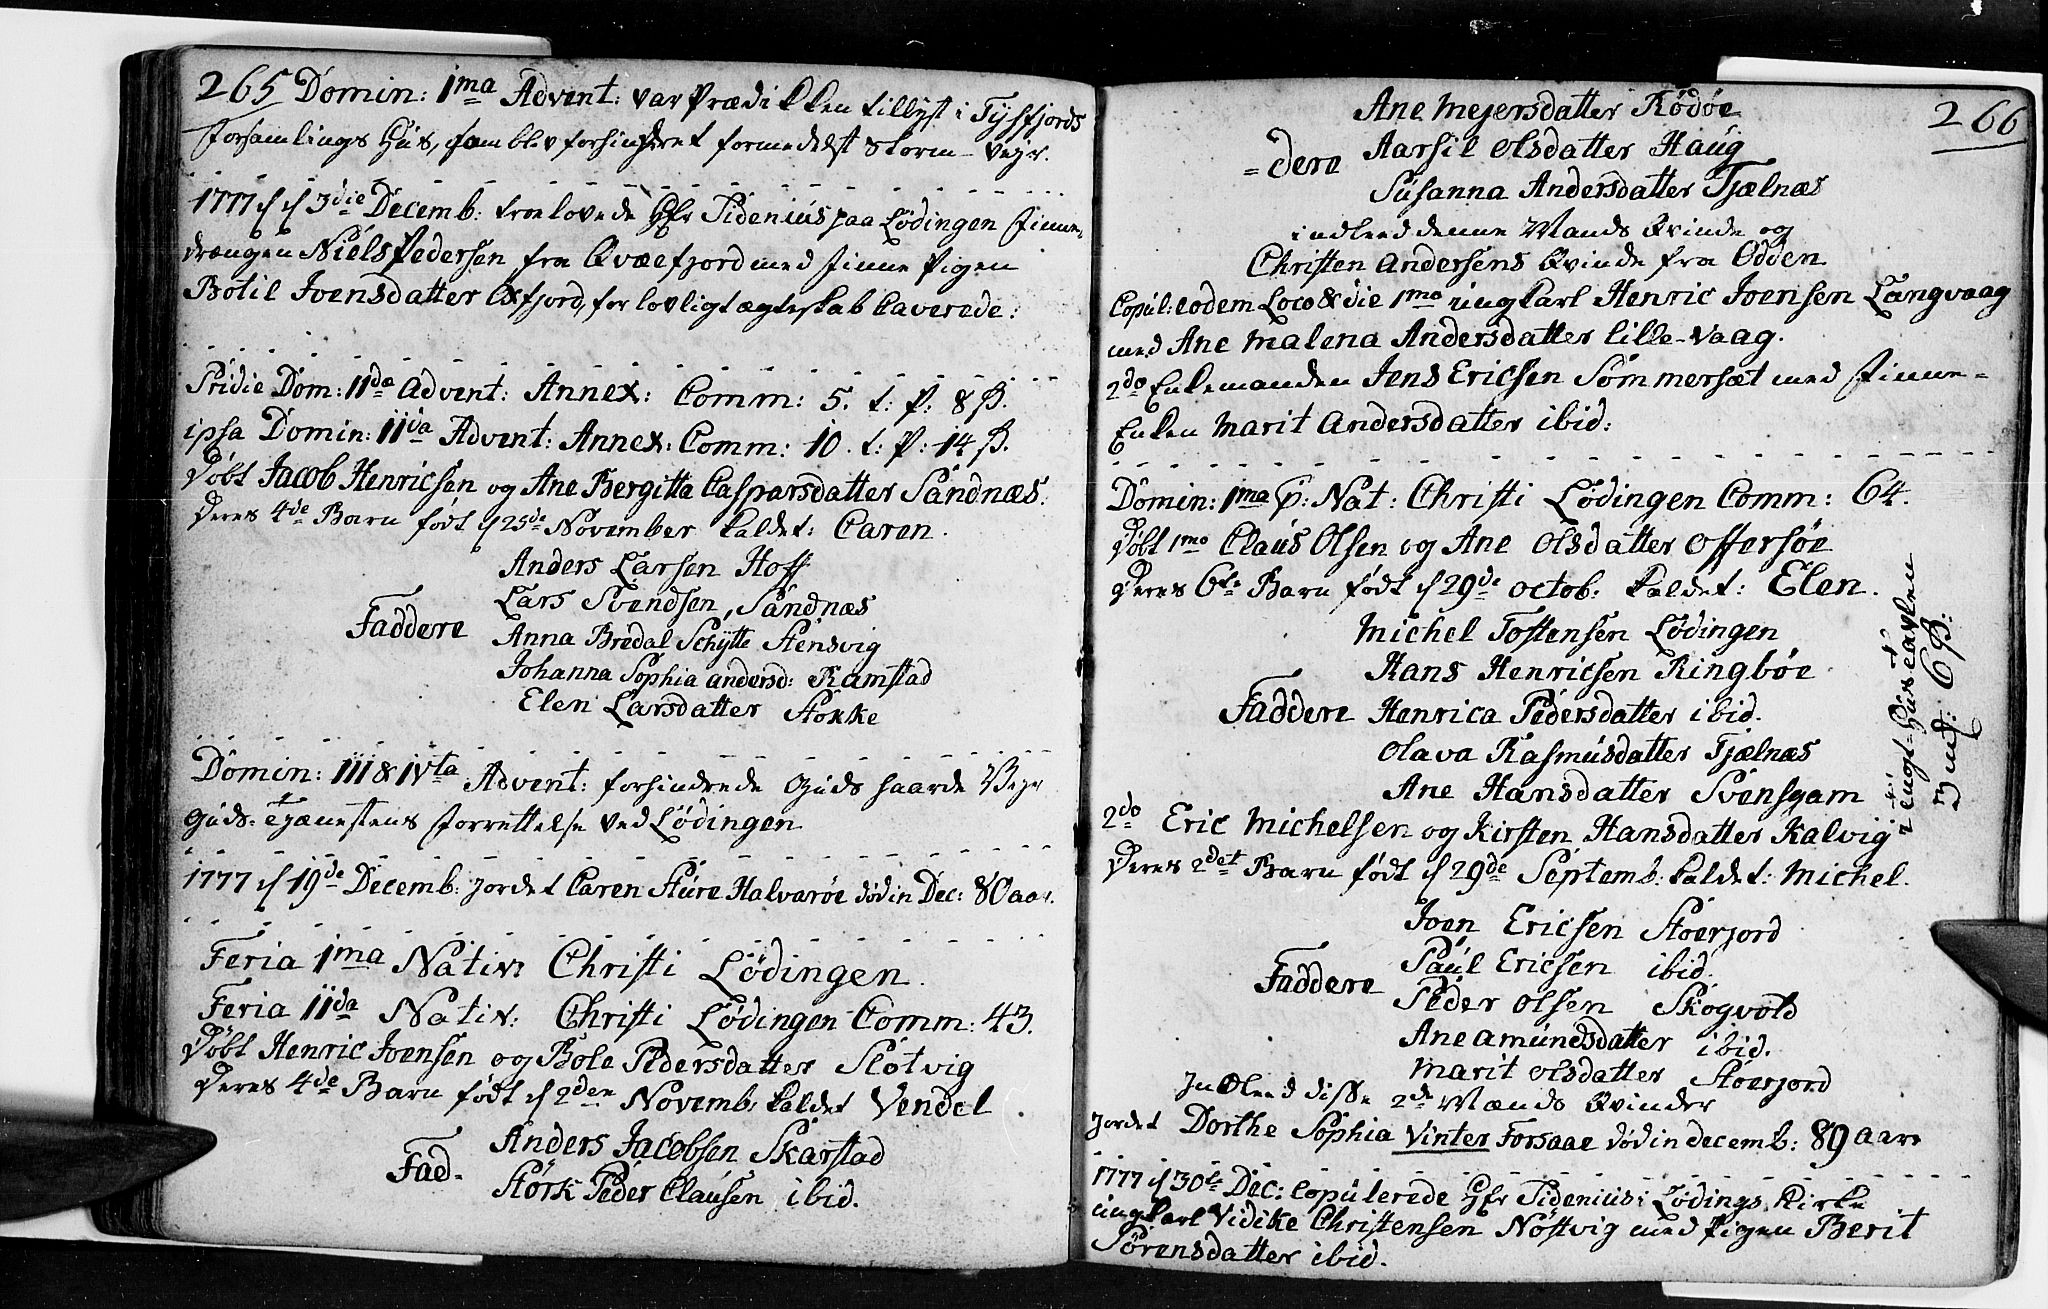 265 Domin: 1ma Advent: var Prædikken tillyst i Tysfjords
Forsamlings Hus, som blev forhindret formedelst Storm-Vejr.
1777 d 3die Decemb: trolovede Hr Tidenius paa Lødingen Finne-
drængen Niels Pedersen fra Qvæefjord med Finne Pigen
Botil Joensdatter Oxfjord, for lovligt ægteskab Caverede:
Pridie Dom: IIda Advent: Annex: Comm: 5. t: P: 8 ß.
ipsa Domin: IIda Advent: Annex: Comm: 10. t: P: 14 ß.
Døbt Jacob Henricsen og Ane Bergitta Caspersdatter Sandnæs.
Deres 4de Barn født d 25de November kaldet: Caren.
Anders Larsen Hoff
Lars Svendsen, Sandnæs
Faddere Anna Bredal Schytte Stensvig
Johanna Sophia andersd: Ramstad
Elen Larsdatter Stokke
Domin: III & IVta Advent: forhindrede Guds haarde Vejr
Guds-Tjænestens Forrettelse ved Lødingen
1777 d 19de Decemb: jordet Caren Sture Halvarøe død in Dec: 80 aar.
Feria 1ma Nativ: Christi Lødingen.
Feria IIda Nativ: Christi Lødingen Comm: 43.
Døbt Henric Joensen og Bole Pedersdatter Slotvig
Deres 4de Barn født d 2den Novemb: kaldet Vendel
Anders Jacobsen Skarstad
Fad. Stork Peder Clausen ibid.
266
Ane Mejersdatter Rødøe
=dere Aarsil Olsdatter Haug
Susanna Andersdatter Tjælnæs
indleed denne Mands Qvinde og
Christen Andersens Qvinde fra Odden
Copul: eodem Loco & die 1mo ungkarl Henric Joensen Langvaag
med Ane Malena Andersdatter Lille-Vaag.
2do Enkemanden Jens Ericsen Sommersæt med Finne-
Enken Marit Andersdatter ibid:
Domin: 1ma p: Nat: Christi Lødingen Comm: 64.
Døbt 1mo Claus Olsen og Ane Olsdatter Offersøe
Deres 6te Barn født d 29de octob: kaldet: Elen.
Michel Tostensen Lødingen
Hans Henricsen Ringbøe
Faddere Henrica Pedersdatter ibid.
Olava Rasmusdatter Tjælnæs
Ane Hansdatter Svensgam
2do Eric Michelsen og Kirsten Hansdatter Kalvig
Deres 2det Barn født d 29de Septemb: kaldet: Michel.
Joen Ericsen Stoerjord
Paul Ericsen ibid.
Faddere Peder Olsen Skogvold
Ane Amundsdatter ibid.
Marit Olsdatter Stoerjord
Indleed disse 2de Mænds Qvinder
Jordet Dorthe Sophia Vinter Forsaae død in decemb: 89 aar
1777 d 30te Dec: Copulerede Hr Tidenius i Lødings Kirke
ungkarl Vidike Christensen Nøstvig med Pigen Berit
Sørensdatter ibid.